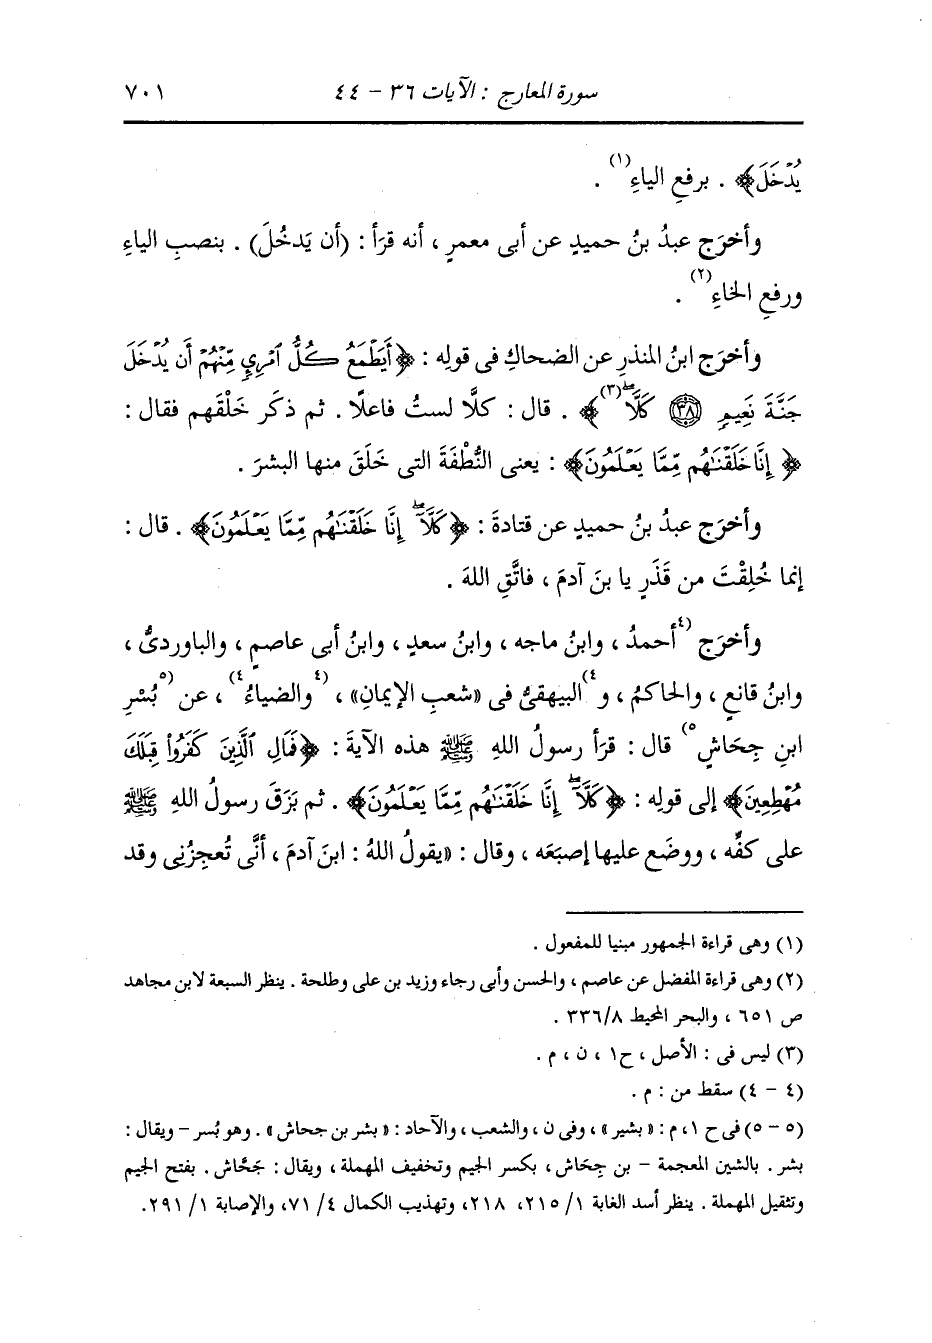 سورة المعارج : الآيات ٣٦ - ٤٤ ٧٠١
يُدْخَلَ﴾ . برفعِ الياءِ(١) .
وأخرَج عبدُ بنُ حميدٍ عن أبى معمرٍ ، أنه قرَأ : (أن يَدخُلَ) . بنصبِ الياءِ
ورفعِ الخاءِ(٢) .
وأخرَج ابنُ المنذرِ عن الضحاكِ فى قولِه : ﴿أَيَطْمَعُ كُلُّ ٱمْرِىٍٕ مِّنْهُمْ أَن يُدْخَلَ
جَنَّةَ نَعِيمٍ ﴿٣٨﴾ كَلَّآۖ(٣)﴾ . قال : كلَّا لستُ فاعلًا . ثم ذكَر خَلْقَهم فقال :
﴿إِنَّا خَلَقْنَٰهُم مِّمَّا يَعْلَمُونَ﴾ : يعنى النُّطْفَةَ التى خَلَق منها البشرَ .
وأخرَج عبدُ بنُ حميدٍ عن قتادةَ : ﴿كَلَّآۖ إِنَّا خَلَقْنَٰهُم مِّمَّا يَعْلَمُونَ﴾ . قال :
إنما خُلِقْتَ من قَذَرٍ يا بنَ آدمَ ، فاتَّقِ اللهَ .
وأخرَج (٤)أحمدُ ، وابنُ ماجه ، وابنُ سعدٍ ، وابنُ أبى عاصمٍ ، والباوردىُّ ،
وابنُ قانعٍ ، والحاكمُ ، و(٤)البيهقىُّ فى «شعبِ الإيمانِ» ، (٤)والضياءُ(٤) ، عن (٥)بُسْرِ
ابنِ جِحَاشٍ(٥) قال : قرَأ رسولُ اللهِ ﷺ هذه الآيةَ : ﴿فَالِ ٱلَّذِينَ كَفَرُوا۟ قِبَلَكَ
مُهْطِعِينَ﴾ إلى قولِه : ﴿كَلَّآۖ إِنَّا خَلَقْنَٰهُم مِّمَّا يَعْلَمُونَ﴾ . ثم بَزَقَ رسولُ اللهِ ﷺ
على كفِّه ، ووضَع عليها إصبَعَه ، وقال : «يقولُ اللهُ : ابنَ آدمَ ، أنَّى تُعجِزُنِى وقد
(١) وهى قراءة الجمهور مبنيا للمفعول .
(٢) وهى قراءة المفضل عن عاصم ، والحسن وأبى رجاء وزيد بن على وطلحة . ينظر السبعة لابن مجاهد
ص ٦٥١ ، والبحر المحيط ٣٣٦/٨ .
(٣) ليس فى : الأصل ، ح١ ، ن ، م .
(٤ - ٤) سقط من : م .
(٥ - ٥) فى ح ١، م : «بشير» ، وفى ن ، والشعب ، والآحاد : «بشر بن جحاش» . وهو بُسر - ويقال :
بشر . بالشين المعجمة - بن جِحَاش ، بكسر الجيم وتخفيف المهملة ، ويقال : جَحَّاش . بفتح الجيم
وتثقيل المهملة . ينظر أسد الغابة ١/ ٢١٥، ٢١٨، وتهذيب الكمال ٤/ ٧١، والإصابة ١/ ٢٩١.